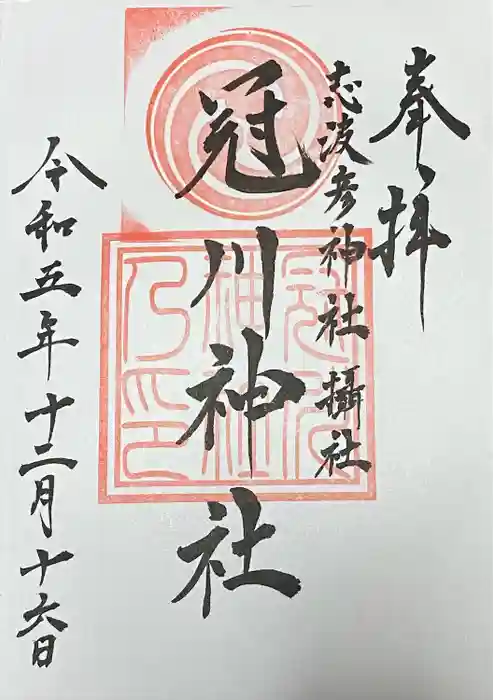 奉拝
志波彦神社 攝社
冠川神社
令和五年十二月十六日